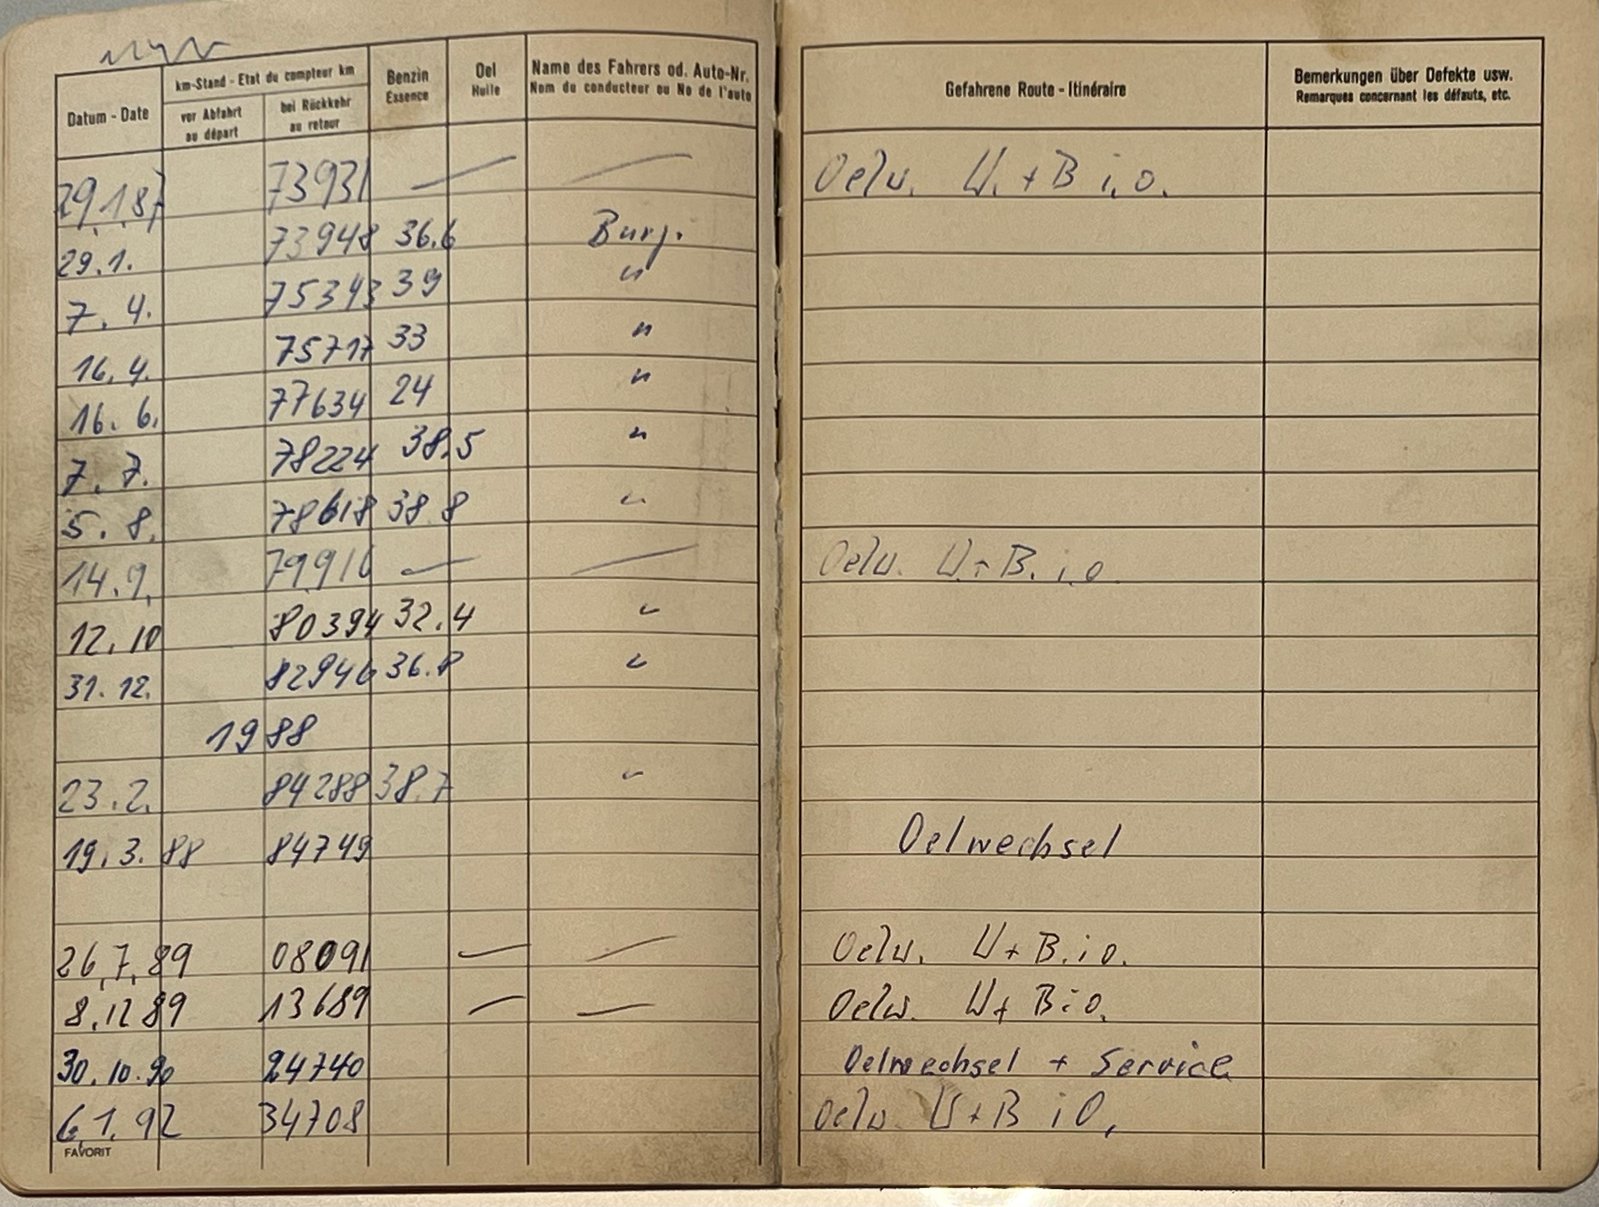 Datum - Date
km-Stand - Etat du compteur km
vor Abfahrt
au départ
bei Rückkehr
au retour
Benzin
Essence
Oel
Huile
Name des Fahrers od. Auto-Nr.
Nom du conducteur ou No de l'auto
Gefahrene Route - Itinéraire
Bemerkungen über Defekte usw.
Remarques concernant les défauts, etc.
29.1.87 73931 — — Oelw. W. + B i.o.
29.1. 73948 36.6 Burg.
7. 4. 75343 39 "
16. 4. 75717 33 "
16. 6. 77634 24 "
7. 7. 78224 38.5 "
5. 8. 78618 38 8 "
14.9. 79916 — — Oelw. W + B. i.o
12. 10 80394 32.4 "
31. 12. 82946 36.8 "
1988
23. 2. 84288 38.7 "
19. 3. 88 84749 Oelwechsel
26.7.89 08091 — — Oelw. W + B. i o.
8.12 89 13689 — — Oelw. W + B i o.
30. 10. 90 24740 Oelwechsel + Service
6.1. 92 34708 Oelw W + B i O.
FAVORIT